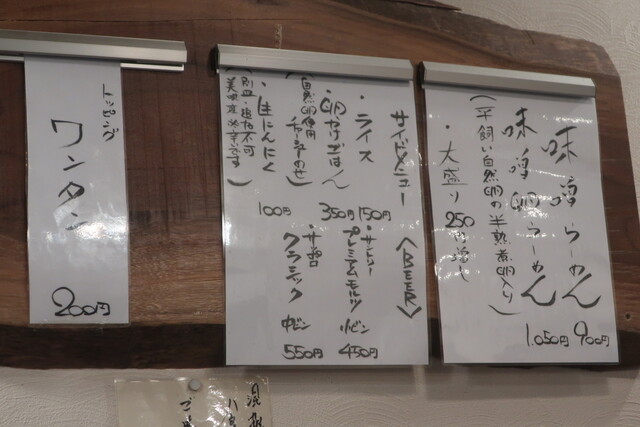 味噌らーめん 900円
味噌卵らーめん 1,050円
(平飼い自然卵の半熟煮卵入り)
・大盛り 250円増し
サイドメニュー
・ライス 150円
・卵かけごはん 350円
(自然卵使用
チャーシューのせ)
・生にんにく 100円
(別皿・追加不可
青森産 ※辛いです)
<BEER>
・サントリー
プレミアムモルツ 小ビン 450円
・サッポロ
クラシック 中ビン 550円
トッピング
ワンタン 200円